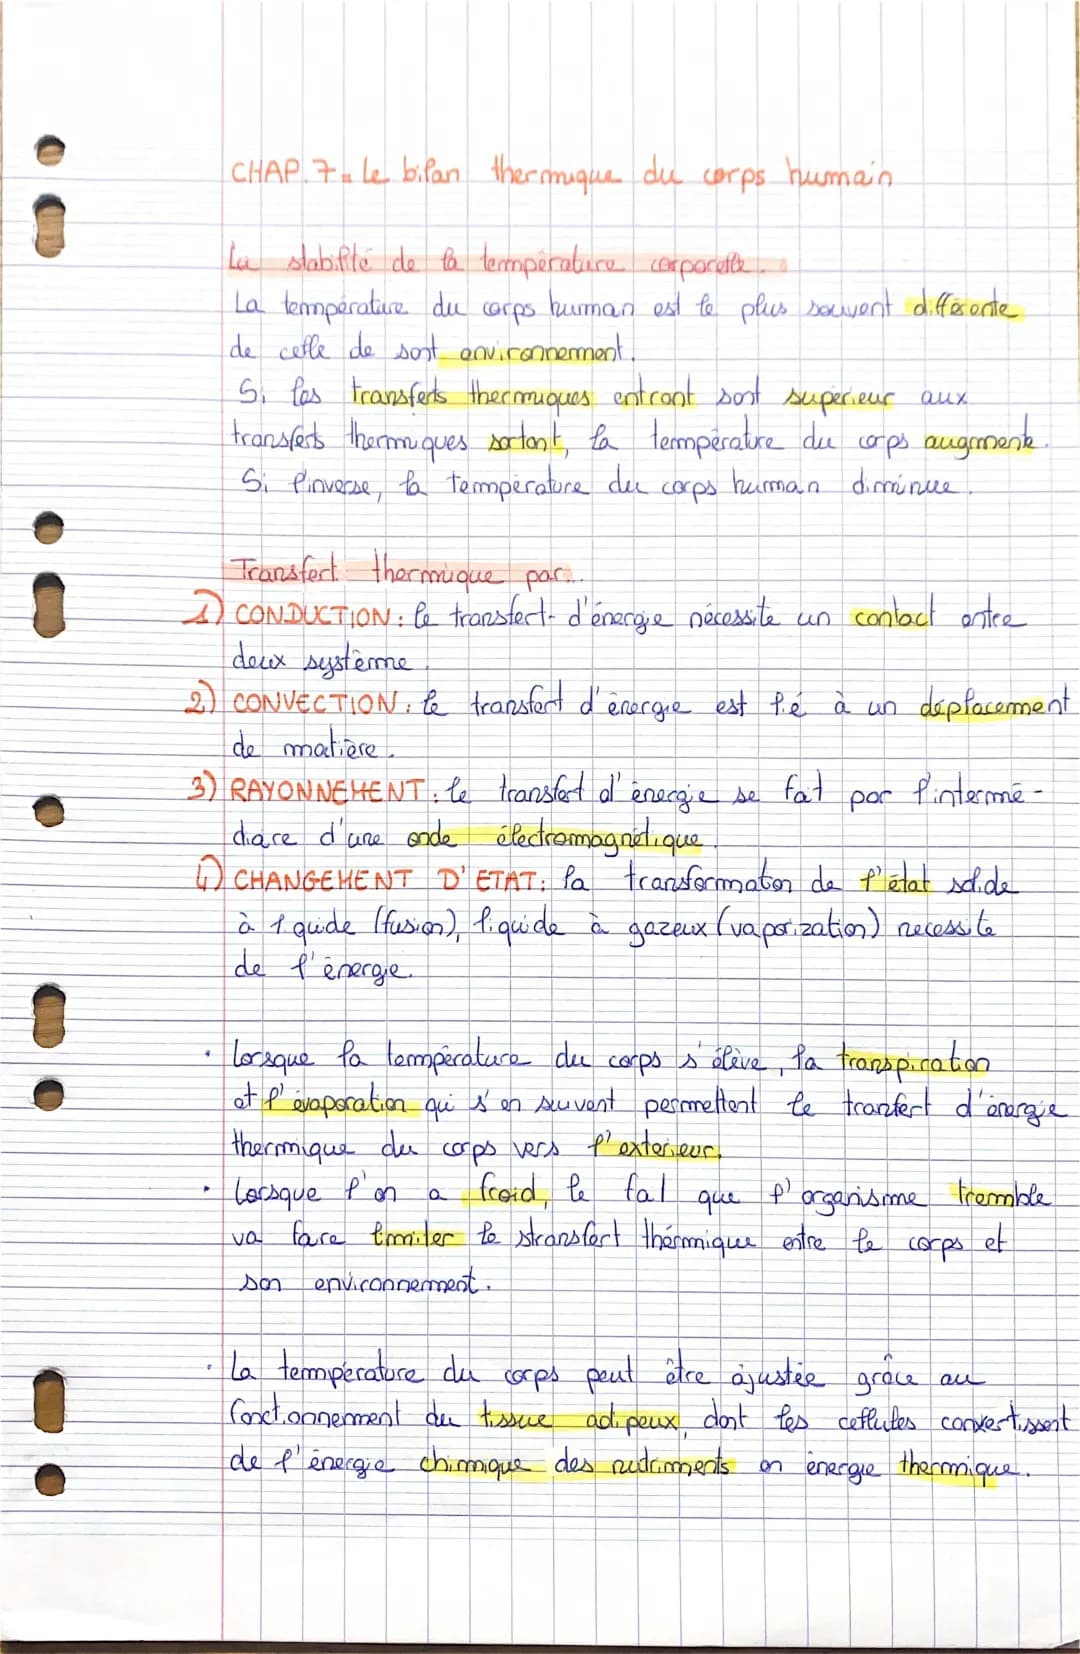 CHAP.7= Le bilan thermique du corps humain
La stabilité de la température corporelle.
La température du corps human est le plus souvent différente
de celle de sont environnement.
Si les transferts thermiques entrant sont supérieur aux
transferts thermiques sortant, la température du corps augmente.
Si l'inverse, la température du corps human diminue.
Transfert thermique par...
1) CONDUCTION: le transfert d'énergie nécessite un contact entre
deux système.
2) CONVECTION: le transfert d'énergie est lié à un déplacement
de matière.
3) RAYONNEMENT: le transfert d'énergie se fait par l'intermé-
diare d'une onde électromagnétique.
4) CHANGEMENT D'ETAT: la transformation de l'état solide
à liquide (fusion), liquide à gazeux (vaporization) necessite
de l'énergie.
· Lorsque la température du corps s'élève, la transpiration
et l'évaporation qui s'en suivent permettent le tranfert d'énergie
thermique du corps vers l'exterieur.
· Lorsque l'on a froid, le fait que l'organisme tremble
va faire limiter le stransfert thérmique entre le corps et
son environnement.
· La température du corps peut être ajustée grâce au
fonctionnement du tissue adipeux, dont les cellules convertissent
de l'énergie chimique des en énergie thermique.